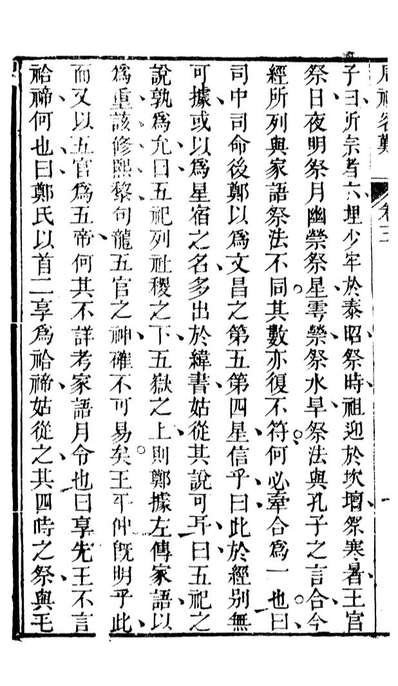 周禮答難 卷三
子曰所宗者六埋少牢於泰昭祭時祖迎於坎壇祭寒暑王宮
祭日夜明祭月幽禜祭星雩禜祭水旱祭法與孔子之言合今
經所列與家語祭法不同其數亦復不符何必牽合爲一也曰
司中司命後鄭以爲文昌之第五第四星信乎曰此於經別無
可據或以爲星宿之名多出於緯書姑從其說可耳曰五祀之
說孰爲允曰五祀列社稷之下五嶽之上則鄭據左傳家語以
爲重該修熙黎句龍五官之神確不可易矣王平仲旣明乎此
而又以五官爲五帝何其不詳考家語月令也曰享先王不言
祫禘何也曰鄭氏以首二享爲祫禘姑從之其四時之祭與毛